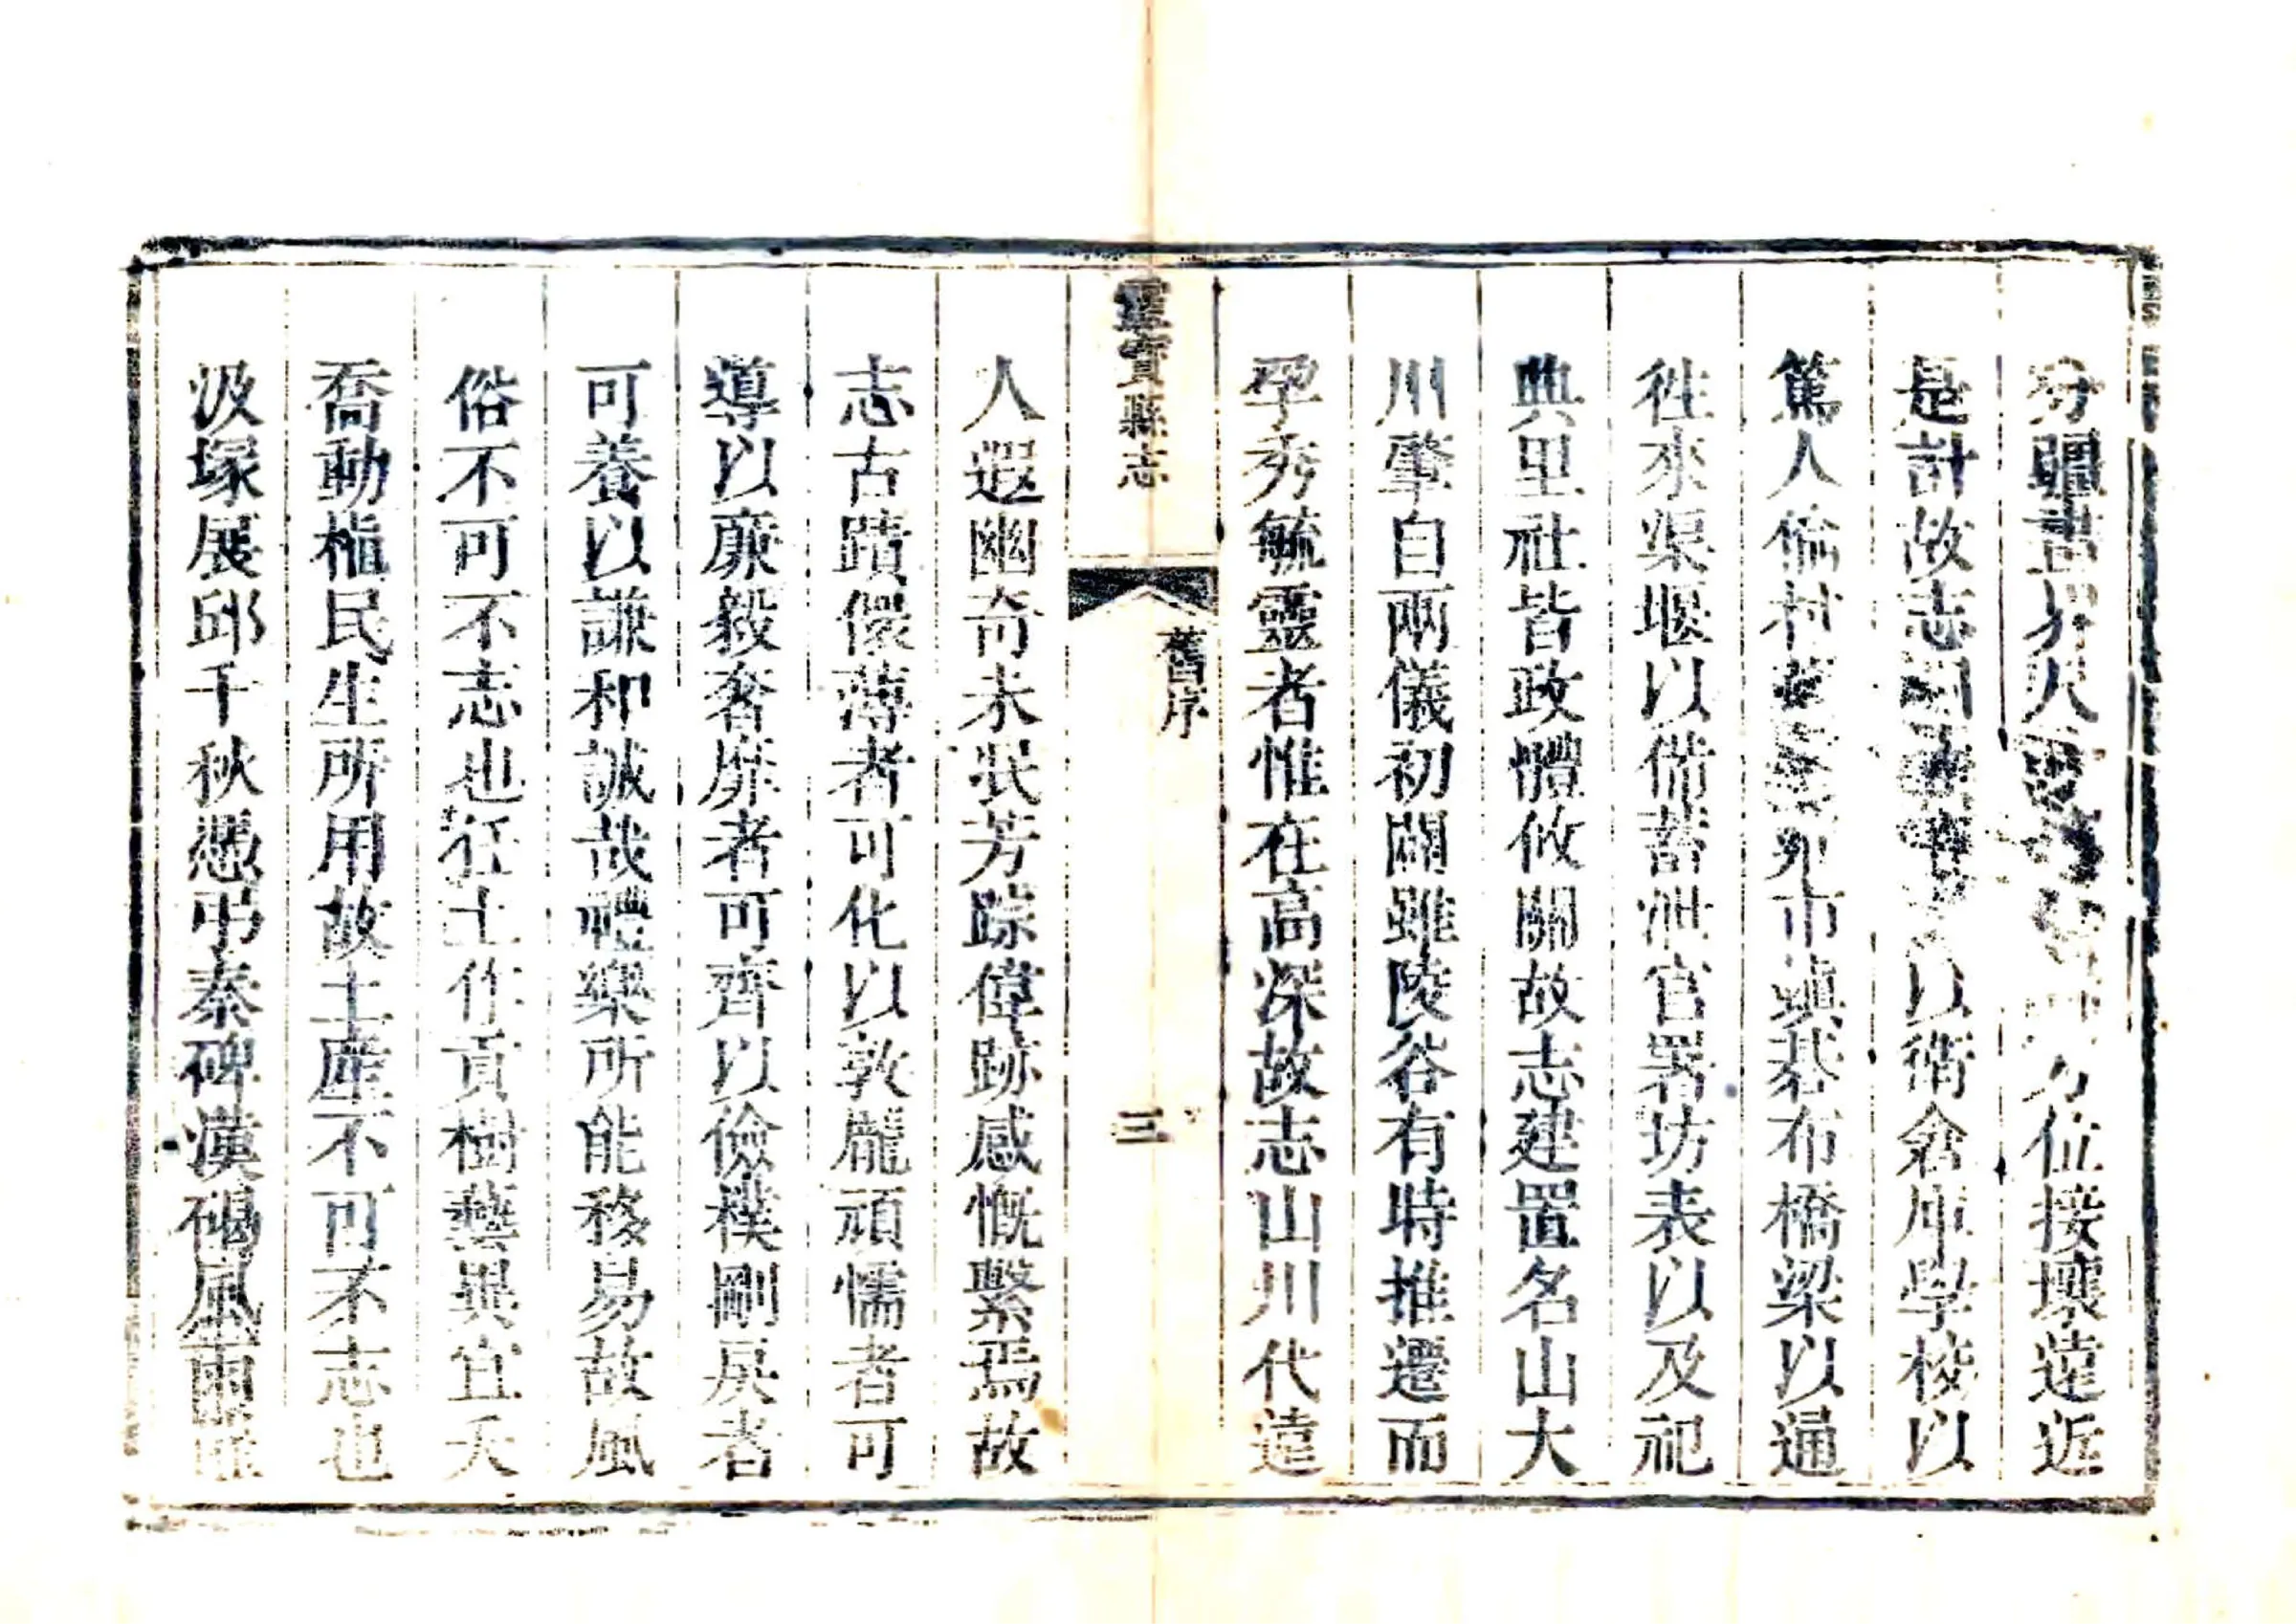 分疆畫界人方位接壤遠近
是計故志以衛倉庫學校以
篤人倫村市鎮碁布橋梁以通
徃來渠堰以備蓄泄官署坊表以及祀
典里社皆政體攸關故志建置名山大
川肇自兩儀初闢雖陵谷有時推遷而
孕秀毓靈者惟在高深故志山川代遠
靈寶縣志
舊序
三
人遐幽奇未泯芳踪偉跡感慨繫焉故
志古蹟儇薄者可化以敦龐頑懦者可
導以廉毅奢靡者可齊以儉樸剛戾者
可養以謙和誠哉禮樂所能移易故風
俗不可不志也任土作貢樹藝異宜夭
喬動植民生所用故土產不可不志也
汲塚展邱千秋憑弔秦碑漢碣風雨